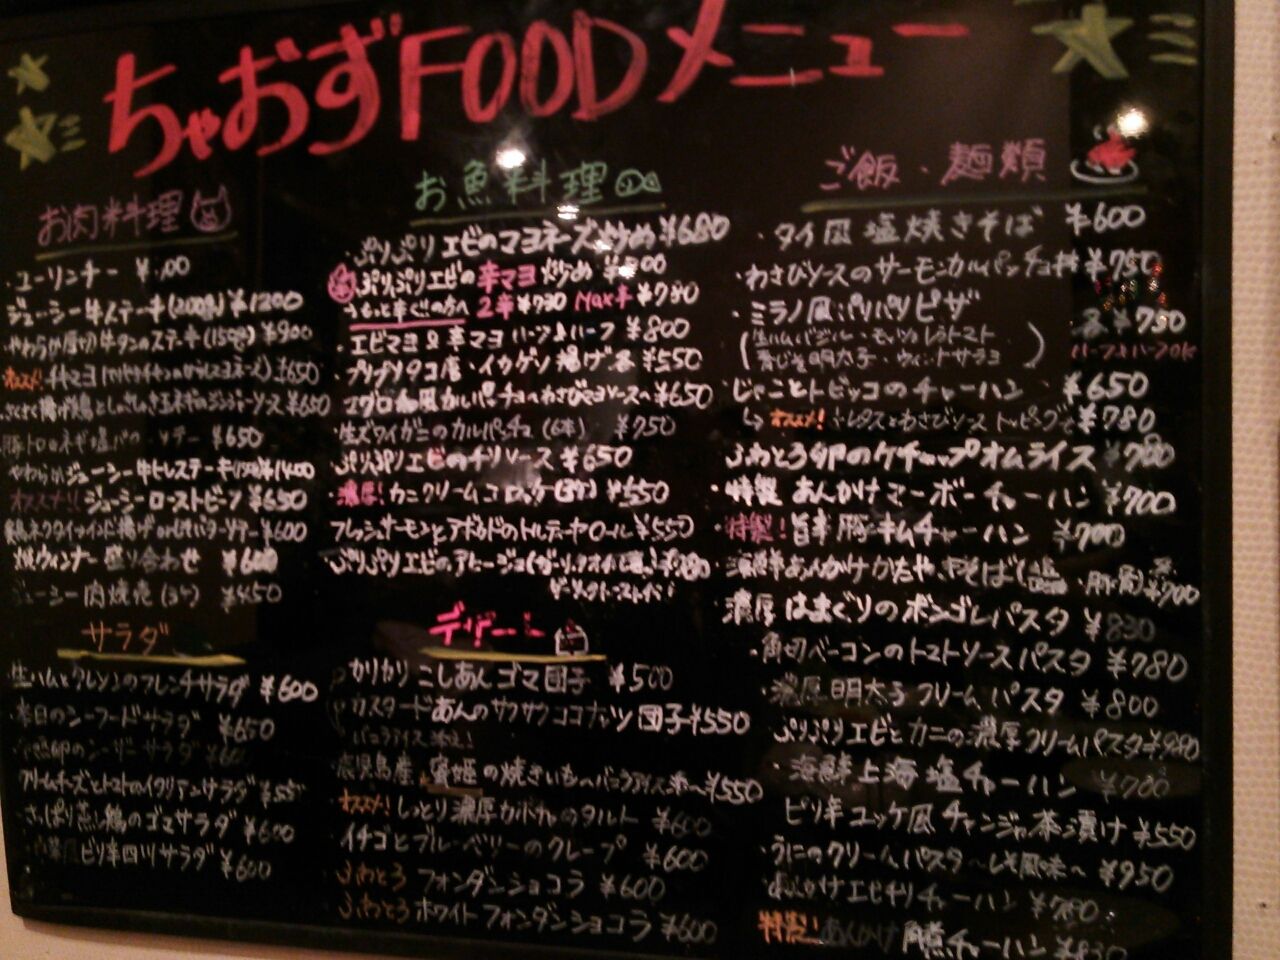 ちゃおずFOODメニュー
お肉料理
・ユーリンチー
ジューシー牛ステーキ(200g) ¥1200
やわらか厚切牛タンのステーキ(150g) ¥900
オススメ! ¥650
¥650
¥650
やわらかジューシー牛ヒレステーキ ¥1400
オススメ!! ジューシーローストビーフ ¥650
¥600
焼ウィンナー盛り合わせ ¥600
ジューシー肉焼売(3ケ) ¥450
サラダ
生ハムとクレソンのフレンチサラダ ¥600
・本日のシーフードサラダ ¥650
シーザーサラダ
クリームチーズとトマトのイタリアンサラダ
・さっぱり蒸し鶏のゴマサラダ ¥600
ピリ辛四川サラダ ¥600
お魚料理
・ぷりぷりエビのマヨネーズ炒め ¥680
ぷりぷりエビの辛マヨ炒め
もっと辛くの方へ 2辛 ¥730 Max辛 ¥780
・エビマヨ&辛マヨ ハーフ&ハーフ ¥800
・プリプリタコ唐・イカゲソ揚げ各 ¥550
マグロ和風カルパッチョ〜わさびマヨソース〜 ¥650
・生ズワイガニのカルパッチョ(6本) ¥750
・ぷりぷりエビのチリソース ¥650
・濃厚! カニクリームコロッケ(3ケ) ¥550
フレッシュサーモンとアボカドのトルティーヤロール ¥550
ぷりぷりエビのアヒージョ
デザート
カリカリこしあんゴマ団子 ¥500
カスタードあんのサクサクココナッツ団子 ¥550
バニラアイス添え!
鹿児島産 蜜姫の焼きいも〜バニラアイス添〜 ¥550
オススメ! しっとり濃厚カボチャのタルト ¥600
イチゴとブルーベリーのクレープ ¥600
・ふわとろ フォンダンショコラ ¥600
・ふわとろ ホワイトフォンダンショコラ ¥600
ご飯、麺類
・タイ風塩焼きそば ¥600
・わさびソースのサーモンカルパッチョ丼 ¥750
・ミラノ風パリパリピザ
各 ¥730
(生ハムバジル・モッツァレラトマト
青じそ明太子・ウィンナーサラミ)
ハーフ&ハーフOK
・じゃことトビッコのチャーハン ¥650
↳オススメ! レタスとわさびソーストッピングで ¥780
ふわとろ卵のケチャップオムライス ¥780
・特製 あんかけマーボーチャーハン ¥700
・特製! 旨辛豚キムチャーハン ¥700
・海鮮あんかけかたやきそば(塩・豚骨) 各¥700
濃厚はまぐりのボンゴレパスタ ¥830
・角切ベーコンのトマトソースパスタ ¥780
・濃厚明太子クリームパスタ ¥800
・ぷりぷりエビとカニの濃厚クリームパスタ
・海鮮上海塩チャーハン ¥700
ピリ辛ユッケ風チャンジャ茶漬け ¥550
・うにのクリームパスタ〜しそ風味〜 ¥950
あんかけエビチリチャーハン ¥780
特製! あんかけ 角煮チャーハン ¥830